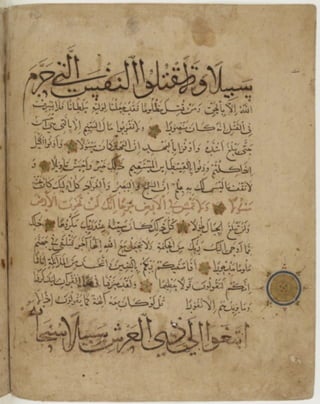 سبيلا ولا تقتلوا النفس التي حرم
الله إلا بالحق ومن قتل مظلوما فقد جعلنا لوليه سلطانا فلا يسرف
في القتل إنه كان منصورا ولا تقربوا مال اليتيم إلا بالتي هي أحسن
حتى يبلغ أشده وأوفوا بالعهد إن العهد كان مسؤولا وأوفوا الكيل
إذا كلتم وزنوا بالقسطاس المستقيم ذلك خير وأحسن تأويلا ولا
تقف ما ليس لك به علم إن السمع والبصر والفؤاد كل أولئك كان عنه
مسؤولا ولا تمش في الأرض مرحا إنك لن تخرق الأرض
ولن تبلغ الجبال طولا كل ذلك كان سيئه عند ربك مكروها ذلك
مما أوحى إليك ربك من الحكمة ولا تجعل مع الله إلها آخر فتلقى في جهنم
ملوما مدحورا أفأصفاكم ربكم بالبنين واتخذ من الملائكة إناثا
إنكم لتقولون قولا عظيما ولقد صرفنا في هذا القرآن ليذكروا
وما يزيدهم إلا نفورا قل لو كان معه آلهة كما يقولون إذا لا
بتغوا إلى ذي العرش سبيلا سبحا